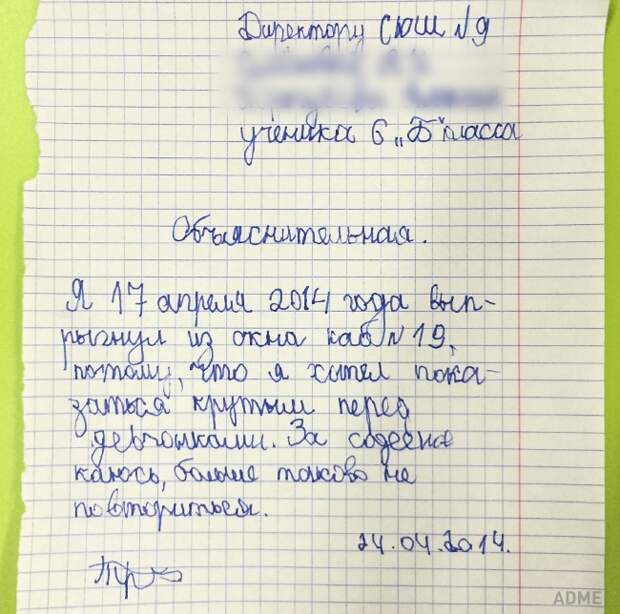 Директору СЮШ №9
ученика 6 „Б" класса
Объяснительная.
Я 17 апреля 2014 года вып-
рыгнул из окна каб №19,
потому, что я хотел пока-
заться крутым перед
девчонками. За содееное
каюсь, больше таково не
повториться.
24.04.2014.
ADME